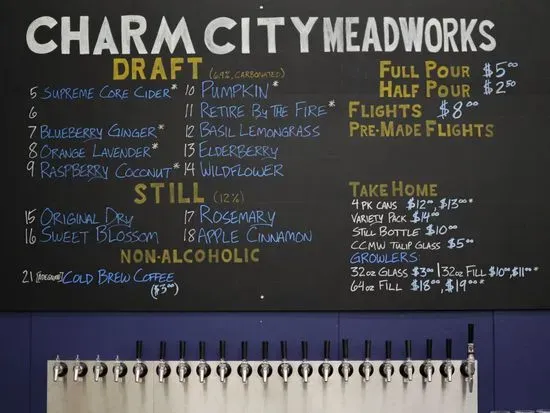 CHARM CITY MEADWORKS
DRAFT (6.9%, CARBONATED)
5 SUPREME CORE CIDER*
6
7 BLUEBERRY GINGER*
8 ORANGE LAVENDER*
9 RASPBERRY COCONUT*
10 PUMPKIN*
11 RETIRE BY THE FIRE*
12 BASIL LEMONGRASS
13 ELDERBERRY
14 WILDFLOWER
STILL (12%)
15 ORIGINAL DRY
16 SWEET BLOSSOM
17 ROSEMARY
18 APPLE CINNAMON
NON-ALCOHOLIC
21 COLD BREW COFFEE
($3.00)
FULL POUR $5.00
HALF POUR $2.50
FLIGHTS $8.00
PRE-MADE FLIGHTS
TAKE HOME
4 PK CANS $12.00, $13.00*
VARIETY PACK $14.00
STILL BOTTLE $10.00
CCMW TULIP GLASS $5.00
GROWLERS:
32oz GLASS $3.00 | 32oz FILL $10.00, $11.00*
64oz FILL $18.00, $19.00*